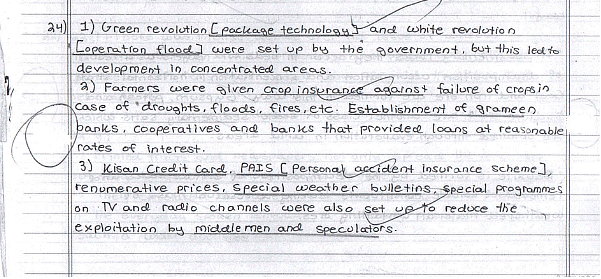 24) 1) Green revolution [package technology] and white revolution
[operation flood] were set up by the government, but this led to
development in concentrated areas.
2) Farmers were given crop insurance against failure of crops in
case of droughts, floods, fires, etc. Establishment of grameen
banks, cooperatives and banks that provided loans at reasonable
rates of interest.
3) Kisan Credit Card, PAIS [Personal accident insurance scheme],
renumerative prices, special weather bulletins, special programmes
on TV and radio channels were also set up to reduce the
exploitation by middle men and speculators.